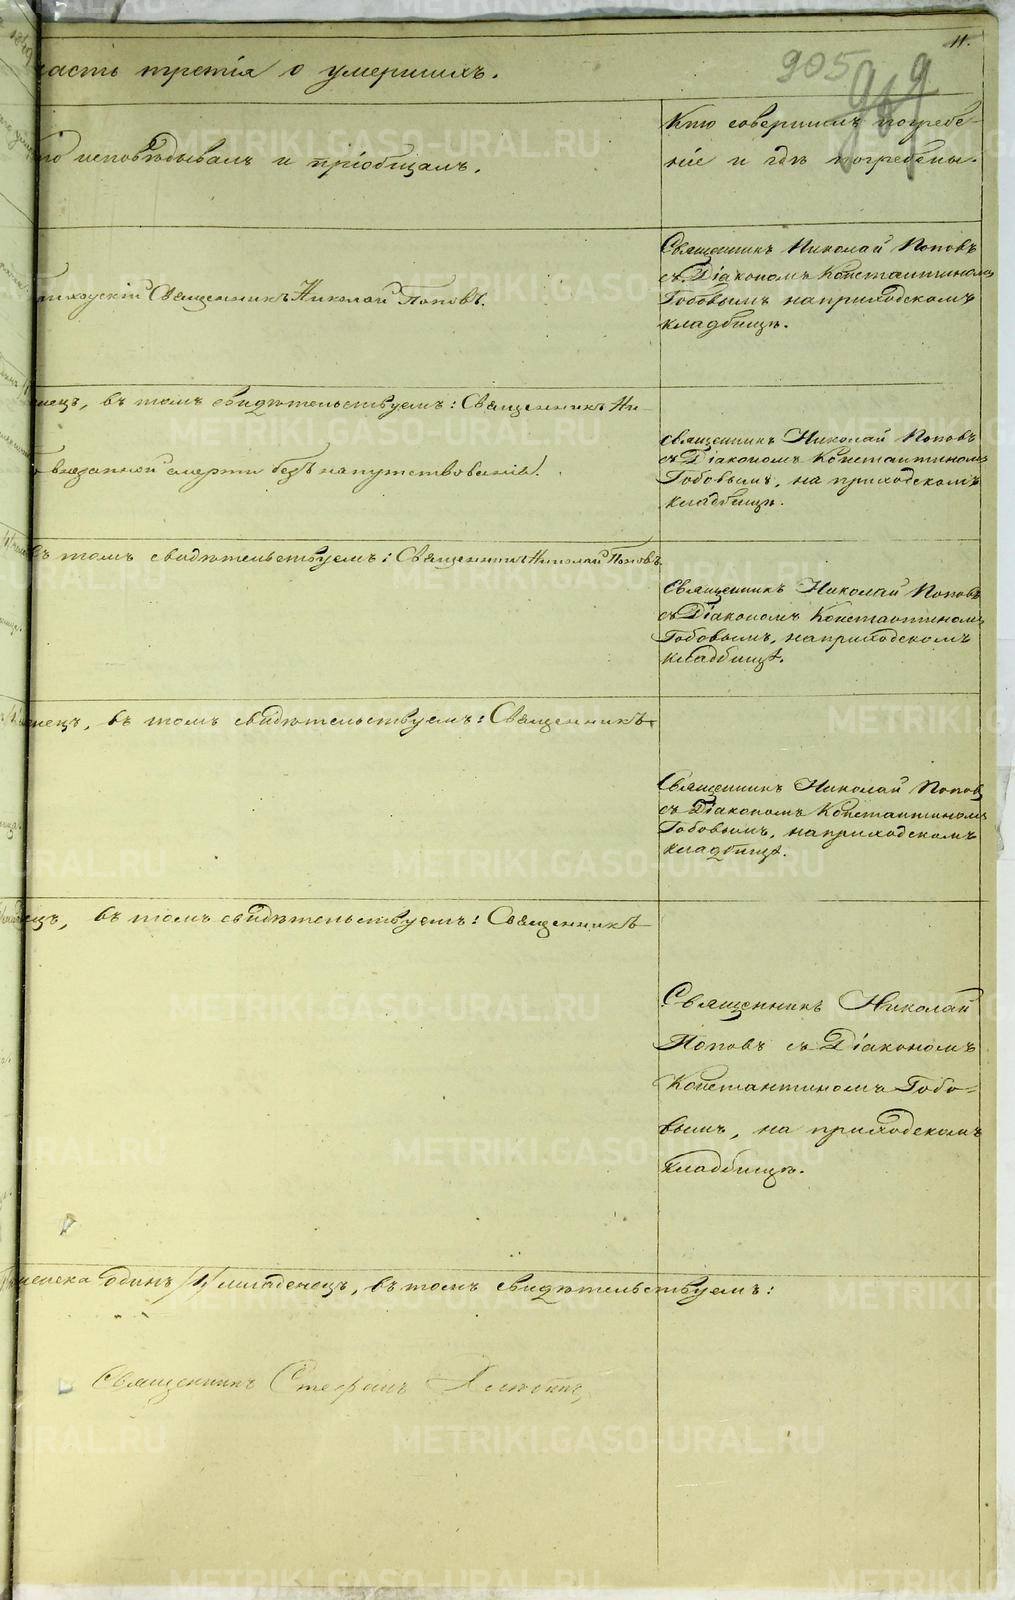 11.
905
асть третія о умершихъ.
то исповѣдывалъ и пріобщалъ.
Кто совершилъ погребе-
ніе и гдѣ погребены.
Священникъ Николай Поповъ
съ Діакономъ Константиномъ
Гобовымъ на приходскомъ
кладбищѣ.
приходскій Священникъ Николай Поповъ.
нецъ, въ томъ свидѣтельствуемъ: Священникъ Ни-
внезапной смерти безъ напутствованія.
Священникъ Николай Поповъ
съ Діакономъ Константиномъ
Гобовымъ, на приходскомъ
кладбищѣ.
въ томъ свидѣтельствуемъ: Священникъ Николай Поповъ
Священникъ Николай Поповъ
съ Діакономъ Константиномъ
Гобовымъ, на приходскомъ
кладбищѣ.
нецъ, въ томъ свидѣтельствуемъ: Священникъ
Священникъ Николай Попов
съ Діакономъ Константиномъ
Гобовымъ, на приходскомъ
кладбищѣ.
ецъ, въ томъ свидѣтельствуемъ: Священникъ
Священникъ Николай
Поповъ съ Діакономъ
Константиномъ Гобо-
вымъ, на приходскомъ
кладбищѣ.
одинъ /1/ младенецъ, въ томъ свидѣтельствуемъ:
Священникъ Стефанъ
METRIKI.GASO-URAL.RU